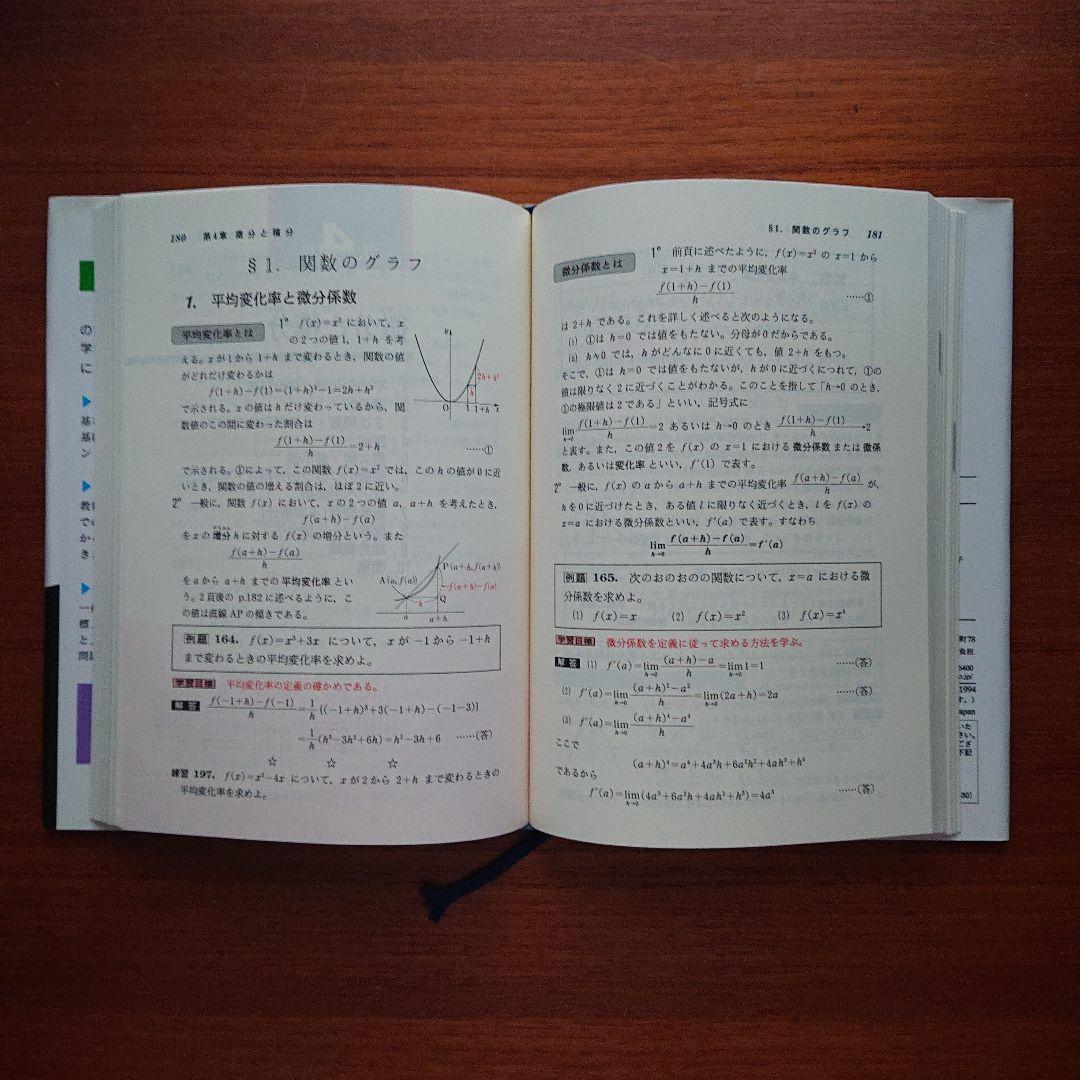 180 第4章 微分と積分
§1. 関数のグラフ
1. 平均変化率と微分係数
平均変化率とは
1° f(x)=x² において、x
の2つの値1, 1+h を考
える。xが1から1+hまで変わるとき、関数の値
がどれだけ変わるかは
f(1+h)-f(1)=(1+h)²-1=2h+h²
で示される。xの値はhだけ変わっているから、関
数値のこの間に変わった割合は
f(1+h)-f(1)/h=2+h ……①
で示される。①によって、この関数 f(x)=x² では、このhの値が0に近
いとき、関数の値の増える割合は、ほぼ2に近い。
2° 一般に、関数 f(x) において、xの2つの値 a, a+h を考えたとき、
f(a+h)-f(a)
をxの増分hに対する f(x) の増分という。また
f(a+h)-f(a)/h
をaから a+h までの平均変化率とい
う。2頁後の p.182に述べるように、こ
の値は直線APの傾きである。
y
2h+h²
h
O 1 1+h x
P(a+h, f(a+h))
A(a, f(a))
f(a+h)-f(a)
h
Q
a a+h
例題 164. f(x)=x³+3x について、xが-1から-1+h
まで変わるときの平均変化率を求めよ。
学習目標 平均変化率の定義の確かめである。
解答 f(-1+h)-f(-1)/h=1/h{(-1+h)³+3(-1+h)-(-1-3)}
=1/h(h³-3h²+6h)=h²-3h+6 ……(答)
☆ ☆ ☆
練習 197. f(x)=x²-4x について、xが2から 2+h まで変わるときの
平均変化率を求めよ。
§1. 関数のグラフ 181
微分係数とは
1° 前頁に述べたように、f(x)=x² の x=1 から
x=1+h までの平均変化率
f(1+h)-f(1)/h ……①
は 2+h である。これを詳しく述べると次のようになる。
(i) ①は h=0 では値をもたない。分母が0だからである。
(ii) h≠0 では、hがどんなに0に近くても、値 2+h をもつ。
そこで、①は h=0 では値をもたないが、hが0に近づくにつれて、①の
値は限りなく2に近づくことがわかる。このことを指して「h→0 のとき、
①の極限値は2である」といい、記号式に
lim h→0 f(1+h)-f(1)/h=2 あるいは h→0 のとき f(1+h)-f(1)/h→2
と表す。また、この値2を f(x) の x=1 における微分係数または微係
数、あるいは変化率といい、f'(1) で表す。
2° 一般に、f(x) のaから a+h までの平均変化率 f(a+h)-f(a)/h が、
hを0に近づけたとき、ある値 l に限りなく近づくとき、l を f(x) の
x=a における微分係数といい、f'(a) で表す。すなわち
lim h→0 f(a+h)-f(a)/h=f'(a)
例題 165. 次のおのおのの関数について、x=a における微
分係数を求めよ。
(1) f(x)=x (2) f(x)=x² (3) f(x)=x⁴
学習目標 微分係数を定義に従って求める方法を学ぶ。
解答 (1) f'(a)=lim h→0 (a+h)-a/h=lim h→0 1=1 ……(答)
(2) f'(a)=lim h→0 (a+h)²-a²/h=lim h→0(2a+h)=2a ……(答)
(3) f'(a)=lim h→0 (a+h)⁴-a⁴/h
ここで
(a+h)⁴=a⁴+4a³h+6a²h²+4ah³+h⁴
であるから
f'(a)=lim h→0(4a³+6a²h+4ah²+h³)=4a³ ……(答)
の
学
に
▶
基
基
ン
▶
教
での
か
き
▶
一
標
と
問
町78
負担
6400
o.jp/
1994
す。)
apan
いた
さい。
ござ
下記
30)